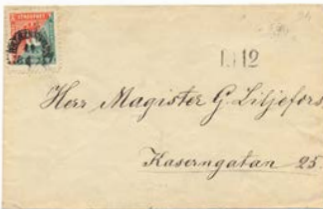 1112
Herr Magister G. Liljefors
Kaserngatan 25.